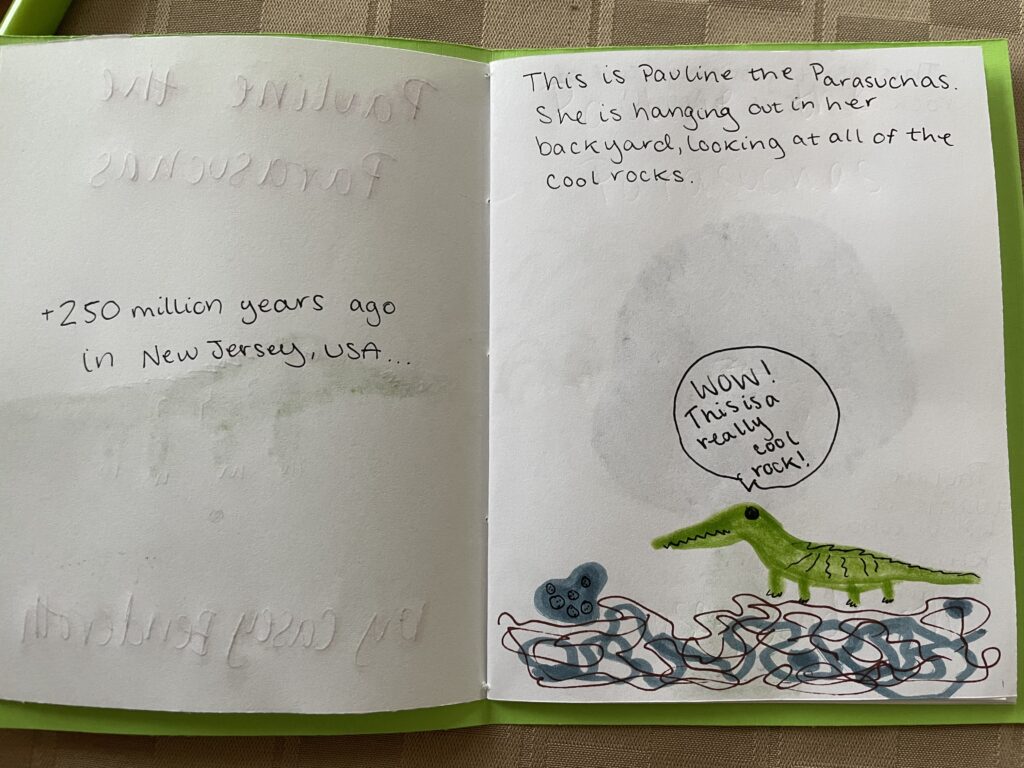 +250 million years ago
in New Jersey, USA...
This is Pauline the Parasuchas.
She is hanging out in her
backyard, looking at all of the
cool rocks.
WOW!
This is a
really
cool
rock!
Pauline the
Parasuchas